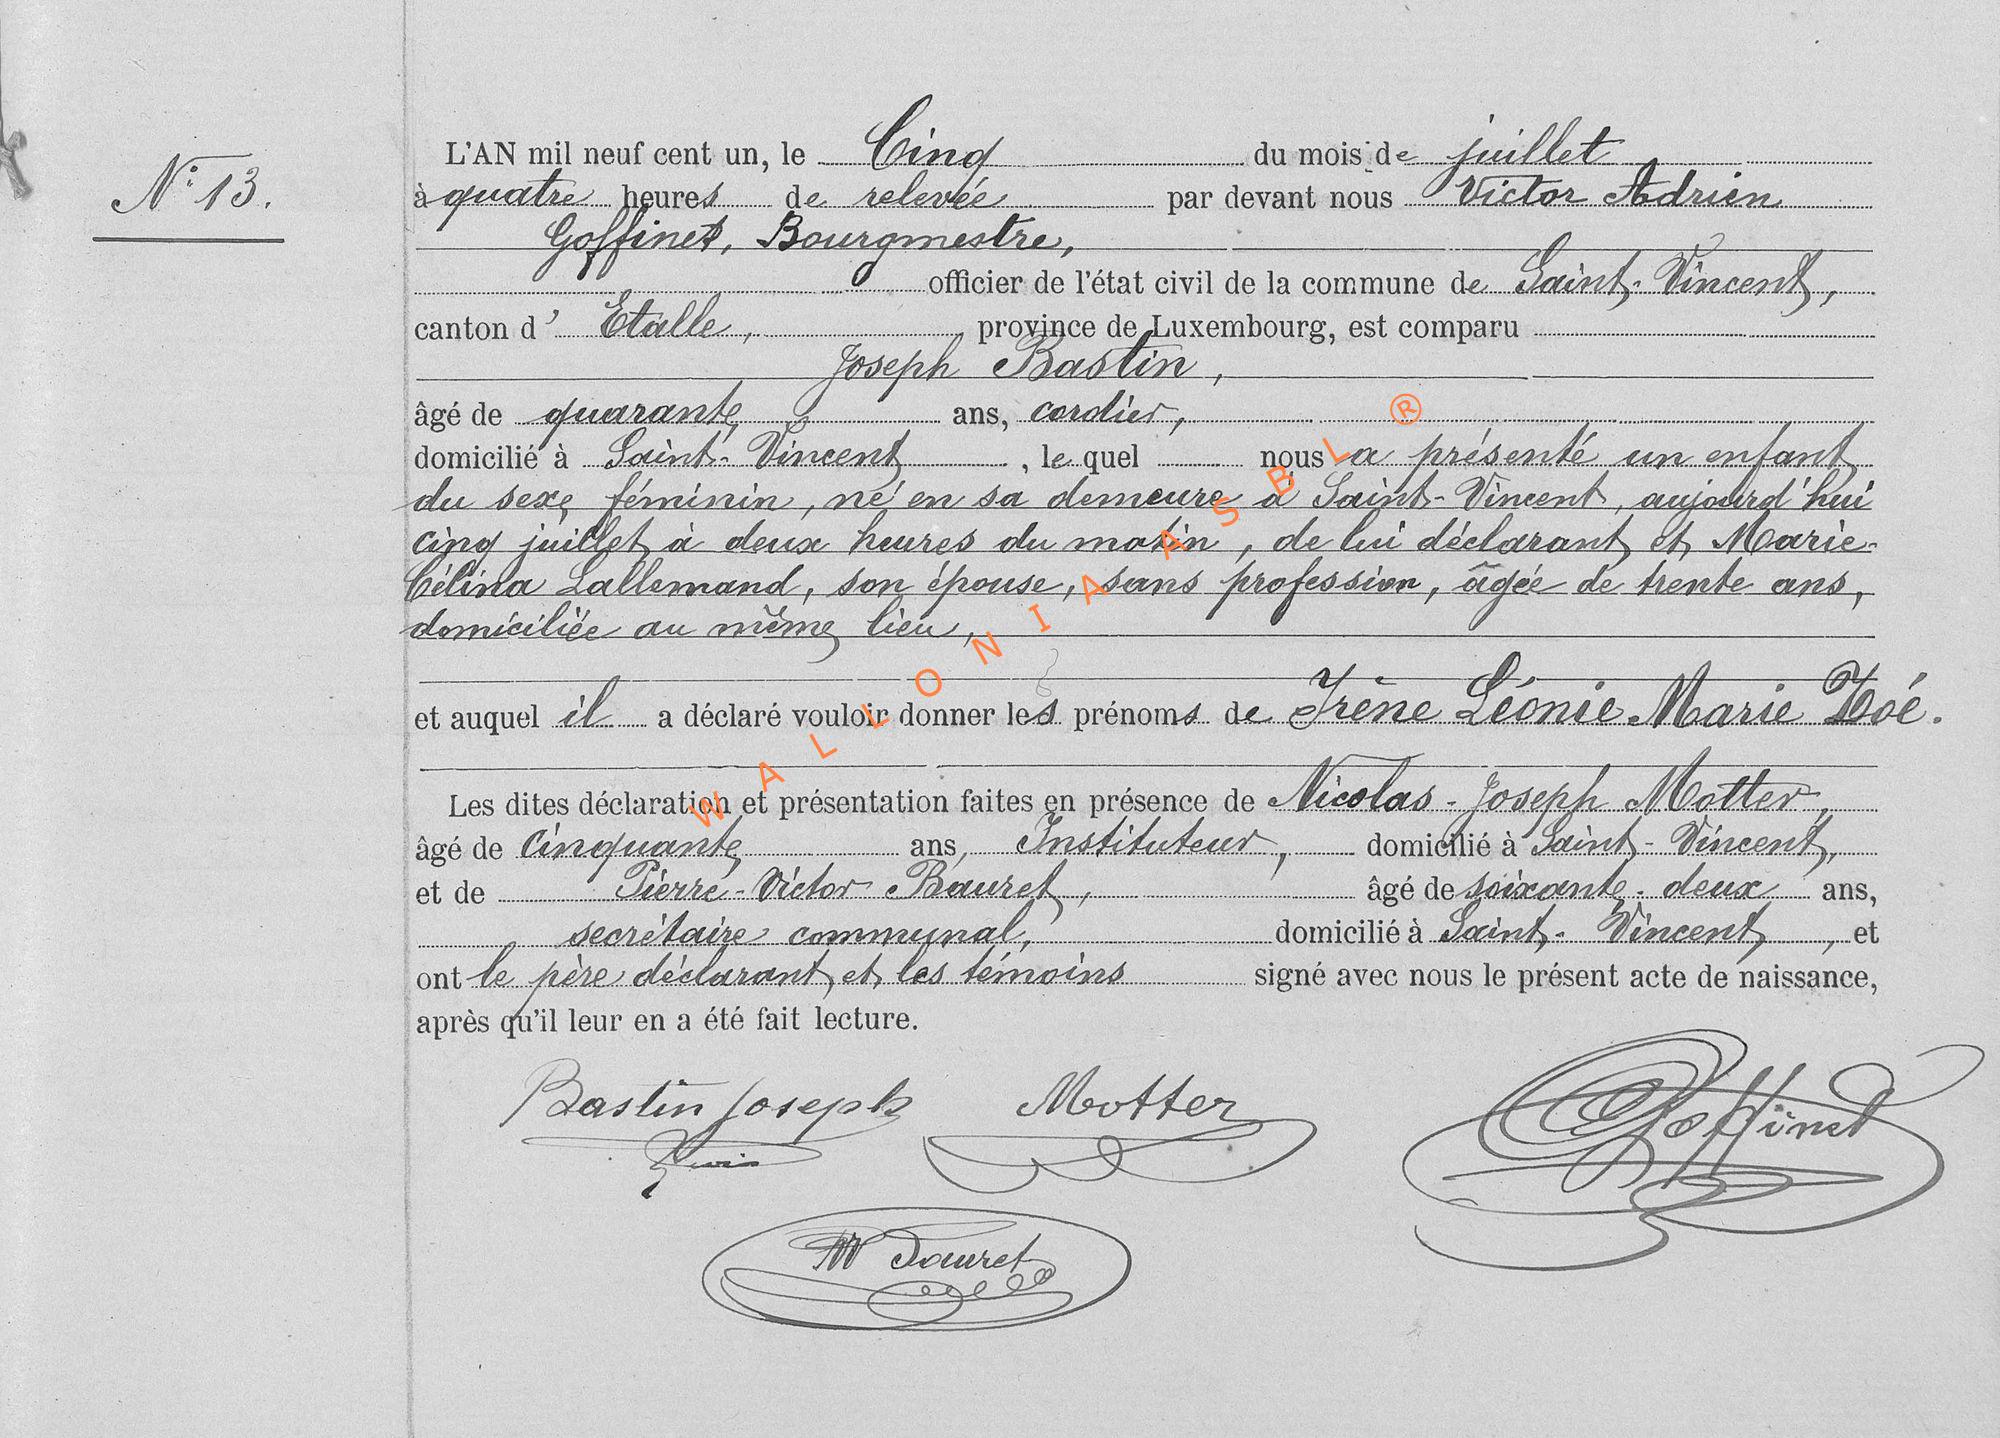 N° 13.
L'AN mil neuf cent un, le Cinq du mois de juillet
à quatre heures de relevée par devant nous Victor Adrien
Goffinet, Bourgmestre,
officier de l'état civil de la commune de Saint-Vincent,
canton d' Etalle, province de Luxembourg, est comparu
Joseph Bastin,
âgé de quarante ans, cordier,
domicilié à Saint-Vincent , le quel nous a présenté un enfant
du sexe féminin, né en sa demeure à Saint-Vincent, aujourd'hui
cinq juillet à deux heures du matin, de lui déclarant et Marie-
Célina Lallemand, son épouse, sans profession, âgée de trente ans,
domiciliée au même lieu,
et auquel il a déclaré vouloir donner les prénoms de Irène Léonie Marie Zoé.
Les dites déclaration et présentation faites en présence de Nicolas-Joseph Motter,
âgé de cinquante ans, Instituteur, domicilié à Saint-Vincent,
et de Pierre-Victor Bauret, âgé de soixante-deux ans,
secrétaire communal, domicilié à Saint-Vincent, et
ont le père déclarant et les témoins signé avec nous le présent acte de naissance,
après qu'il leur en a été fait lecture.
Bastin Joseph Motter Goffinet
Bauret
WALLONIA ASBL ®